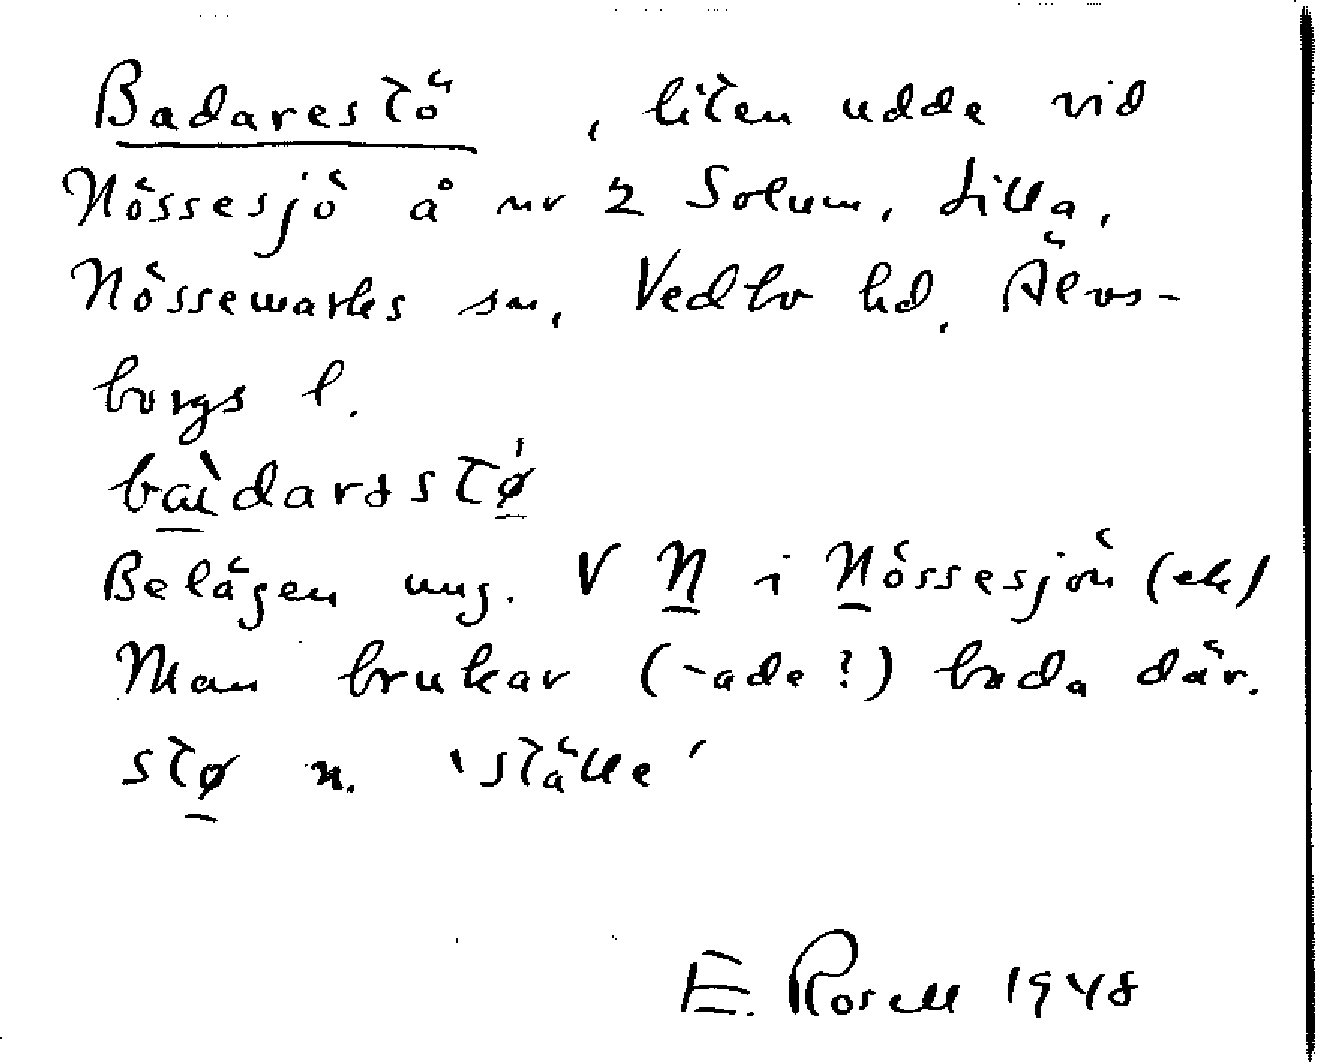 Badarestö, liten udde vid
Nössesjö å nr 2 Solum, Lilla,
Nössemarks sn, Vedbo hd, Älvs-
borgs l.
bàdarəstǿ
Belägen ung. V N i Nössesjön (ek)
Man brukar (-ade?) bada där.
stø n. 'ställe'
E. Rosell 1948